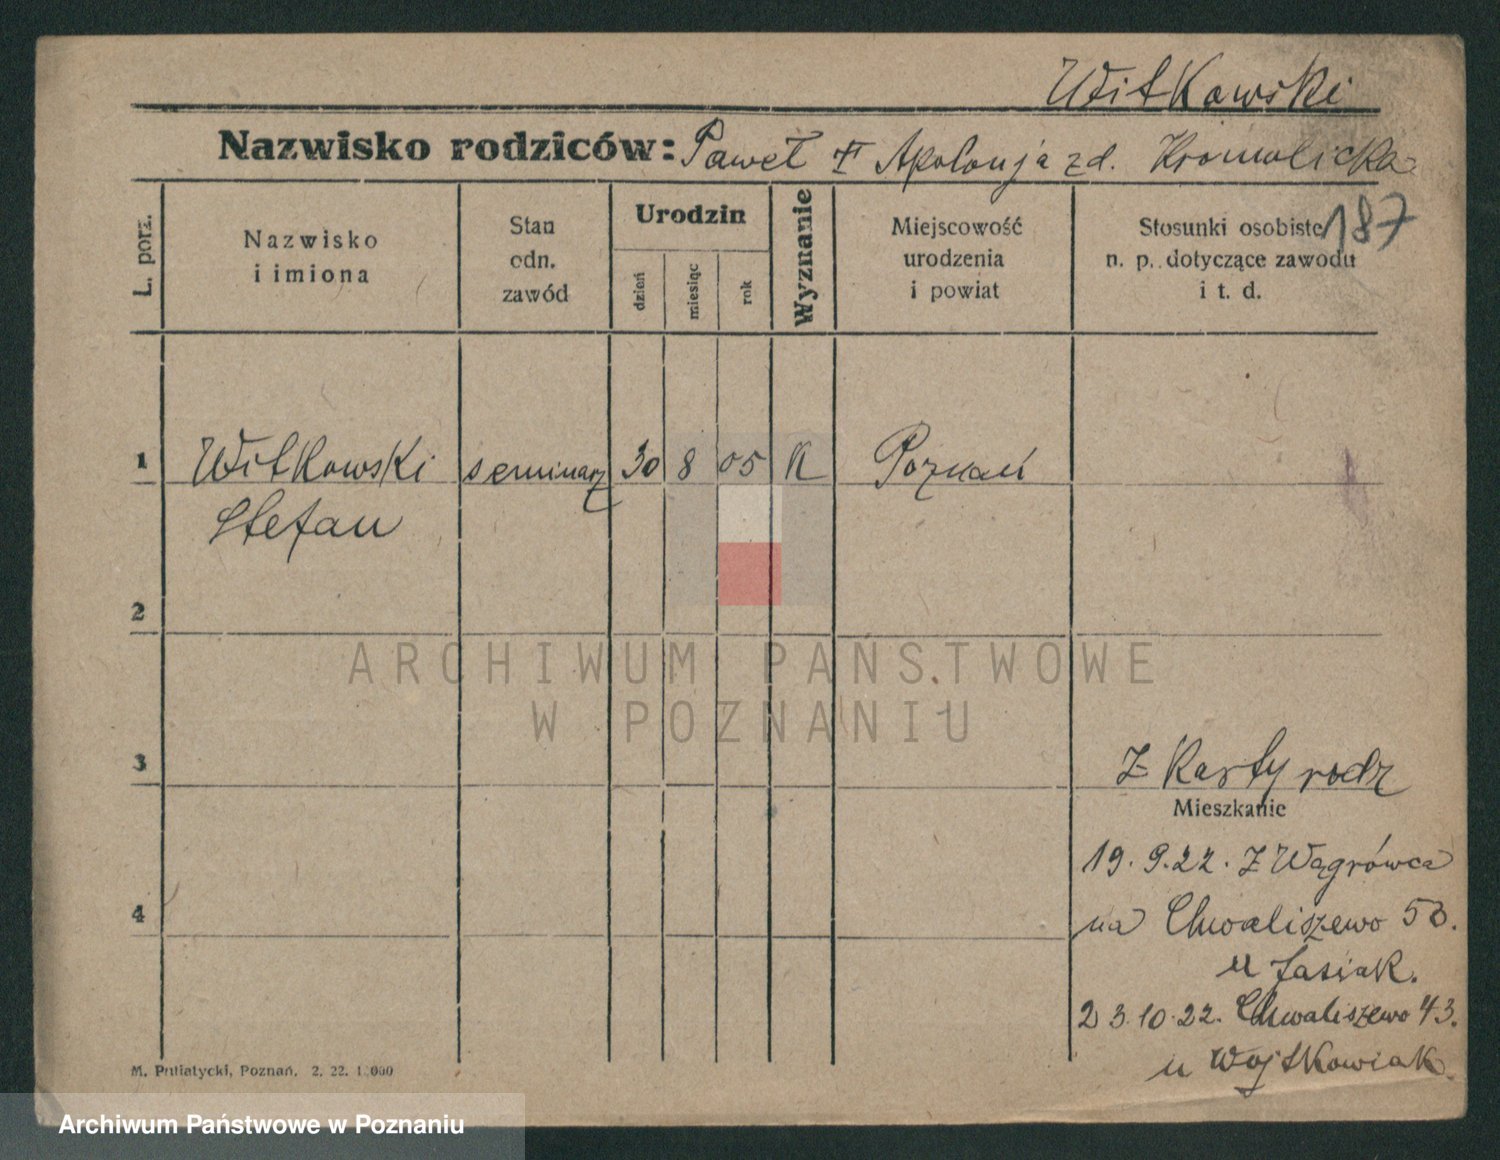 Witkowski
Nazwisko rodziców: Paweł + Apolonja zd. Kromolicka
187
L. porz.
Nazwisko
i imiona
Stan
odn.
zawód
Urodzin
dzień
miesiąc
rok
Wyznanie
Miejscowość
urodzenia
i powiat
Stosunki osobiste
n. p. dotyczące zawodu
i t. d.
1 Witkowski seminarz 30 8 05 K Poznań
Stefan
2
ARCHIWUM PAŃSTWOWE
W POZNANIU
3
Z Karty rodz
Mieszkanie
19. 9. 22. Z Wągrówca
4
na Chwaliszewo 53.
u Jasiak.
23. 10. 22. Chwaliszewo 43.
u Wojtkowiak.
M. Putiatycki, Poznań. 2. 22. 1.000
Archiwum Państwowe w Poznaniu